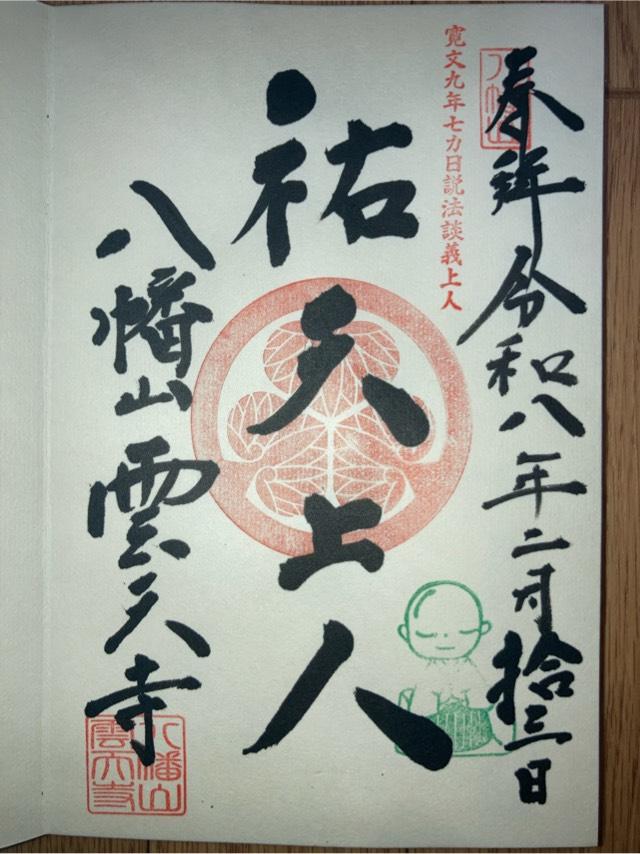 奉拝 令和八年二月拾三日
八幡山
寛文九年七カ日説法談義上人
祐天上人
八幡山 雲天寺
八幡山
雲天寺